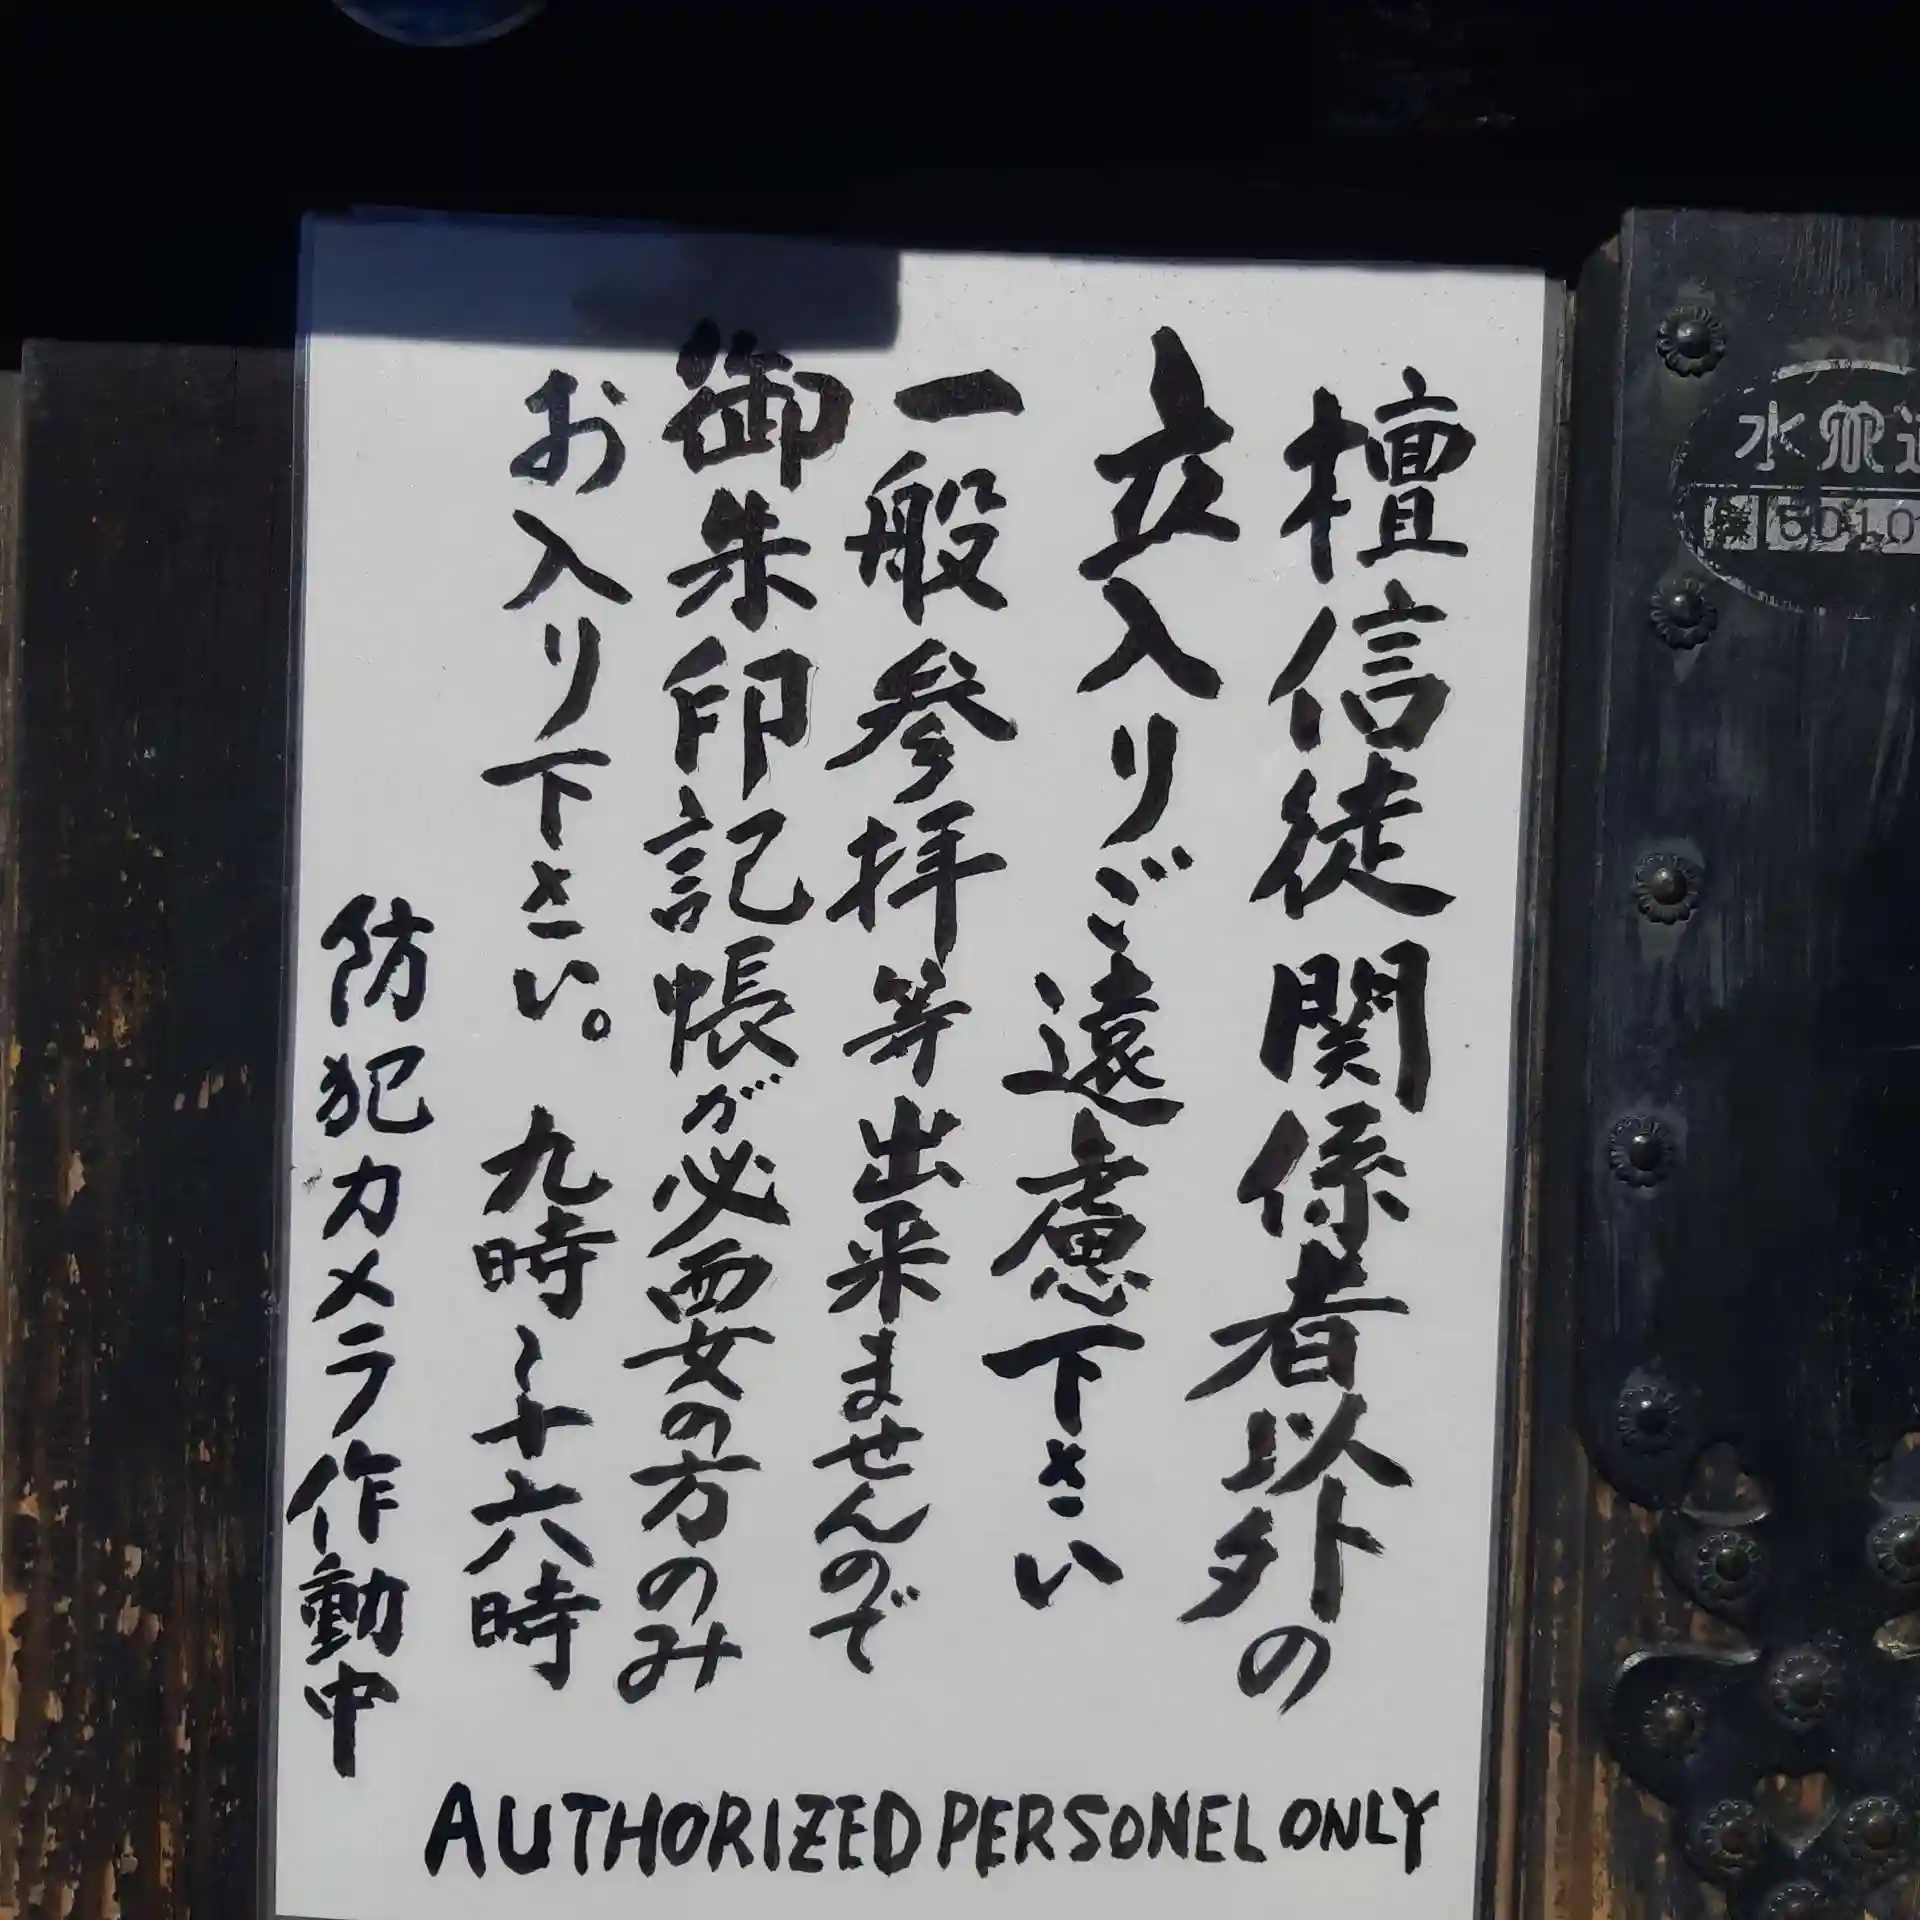 檀信徒関係者以外の
立入りご遠慮下さい
一般参拝等出来ませんので
御朱印記帳が必要の方のみ
お入り下さい。九時〜十六時
防犯カメラ作動中
AUTHORIZED PERSONEL ONLY
水
5010